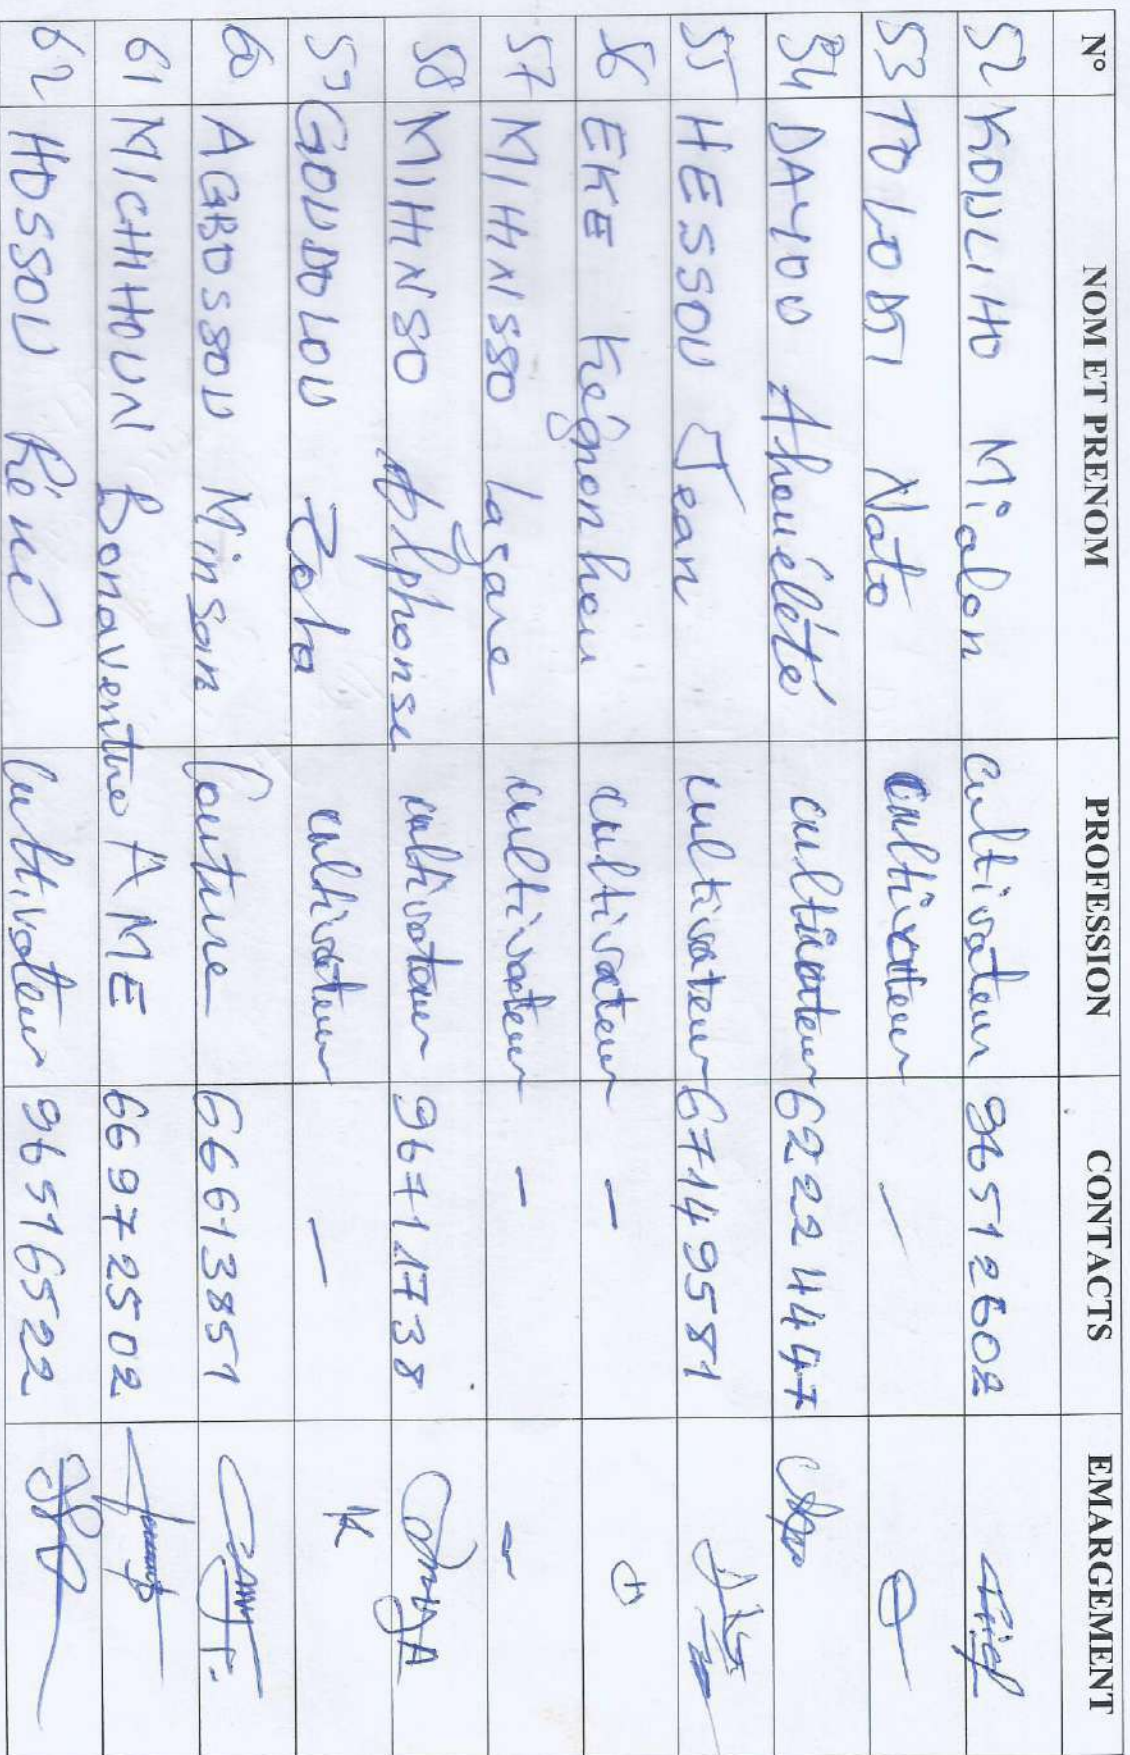 N° NOM ET PRENOM PROFESSION CONTACTS EMARGEMENT
52 KOULIHO Mialon cultivateur 96512602
53 TOLODJI Nato cultivateur —
54 DAYOU Ahouélété cultivateur 62224447
55 HESSOU Jean cultivateur 67149581
56 EKE Kégnonhou cultivateur —
57 MIHINSSO Lagare cultivateur —
58 MIHINSO Alphonse cultivateur 96711738
59 GOUDOLOU Zoha cultivateur —
60 AGBOSSOU Minsan Couture 66613851
61 MICHIHOUN Bonaventure AME 66972502
62 HOSSOU Réné Cultivateur 96516522